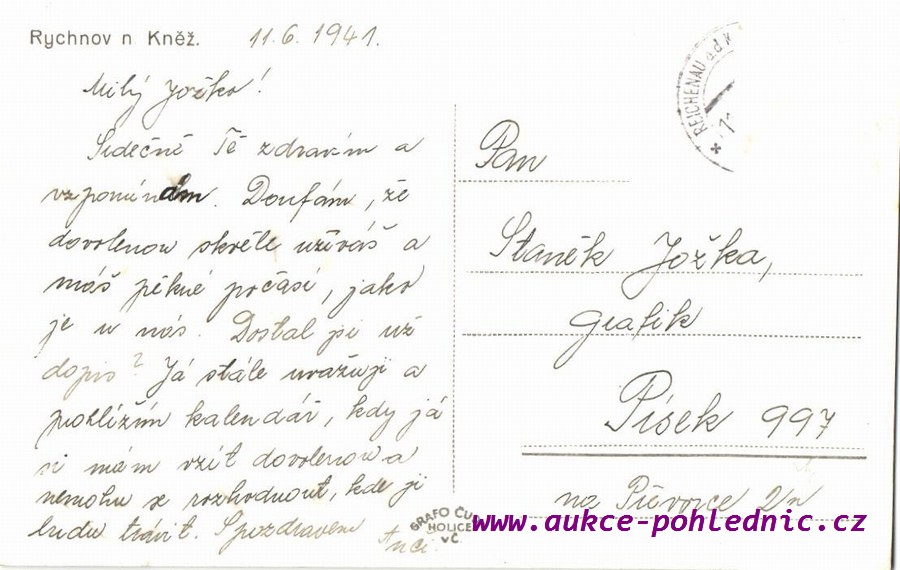 Rychnov n Kněž. 11.6.1941.
Milý Jožko!
Srdečně Tě zdravím a
vzpomínám. Doufám, že
dovolenou skvěle užíváš a
máš pěkné počasí, jako
je u nás. Dostal jsi už
dopis? Já stále uvažuji a
prohlížím kalendář, kdy já
si mám vzít dovolenou a
nemohu se rozhodnout, kde ji
budu trávit. S pozdravem
Anči.
REICHENAU a.d.K
Pan
Staněk Jožka,
grafik
Písek 997
na
GRAFO ČU
HOLICE
v Č.
www.aukce-pohlednic.cz